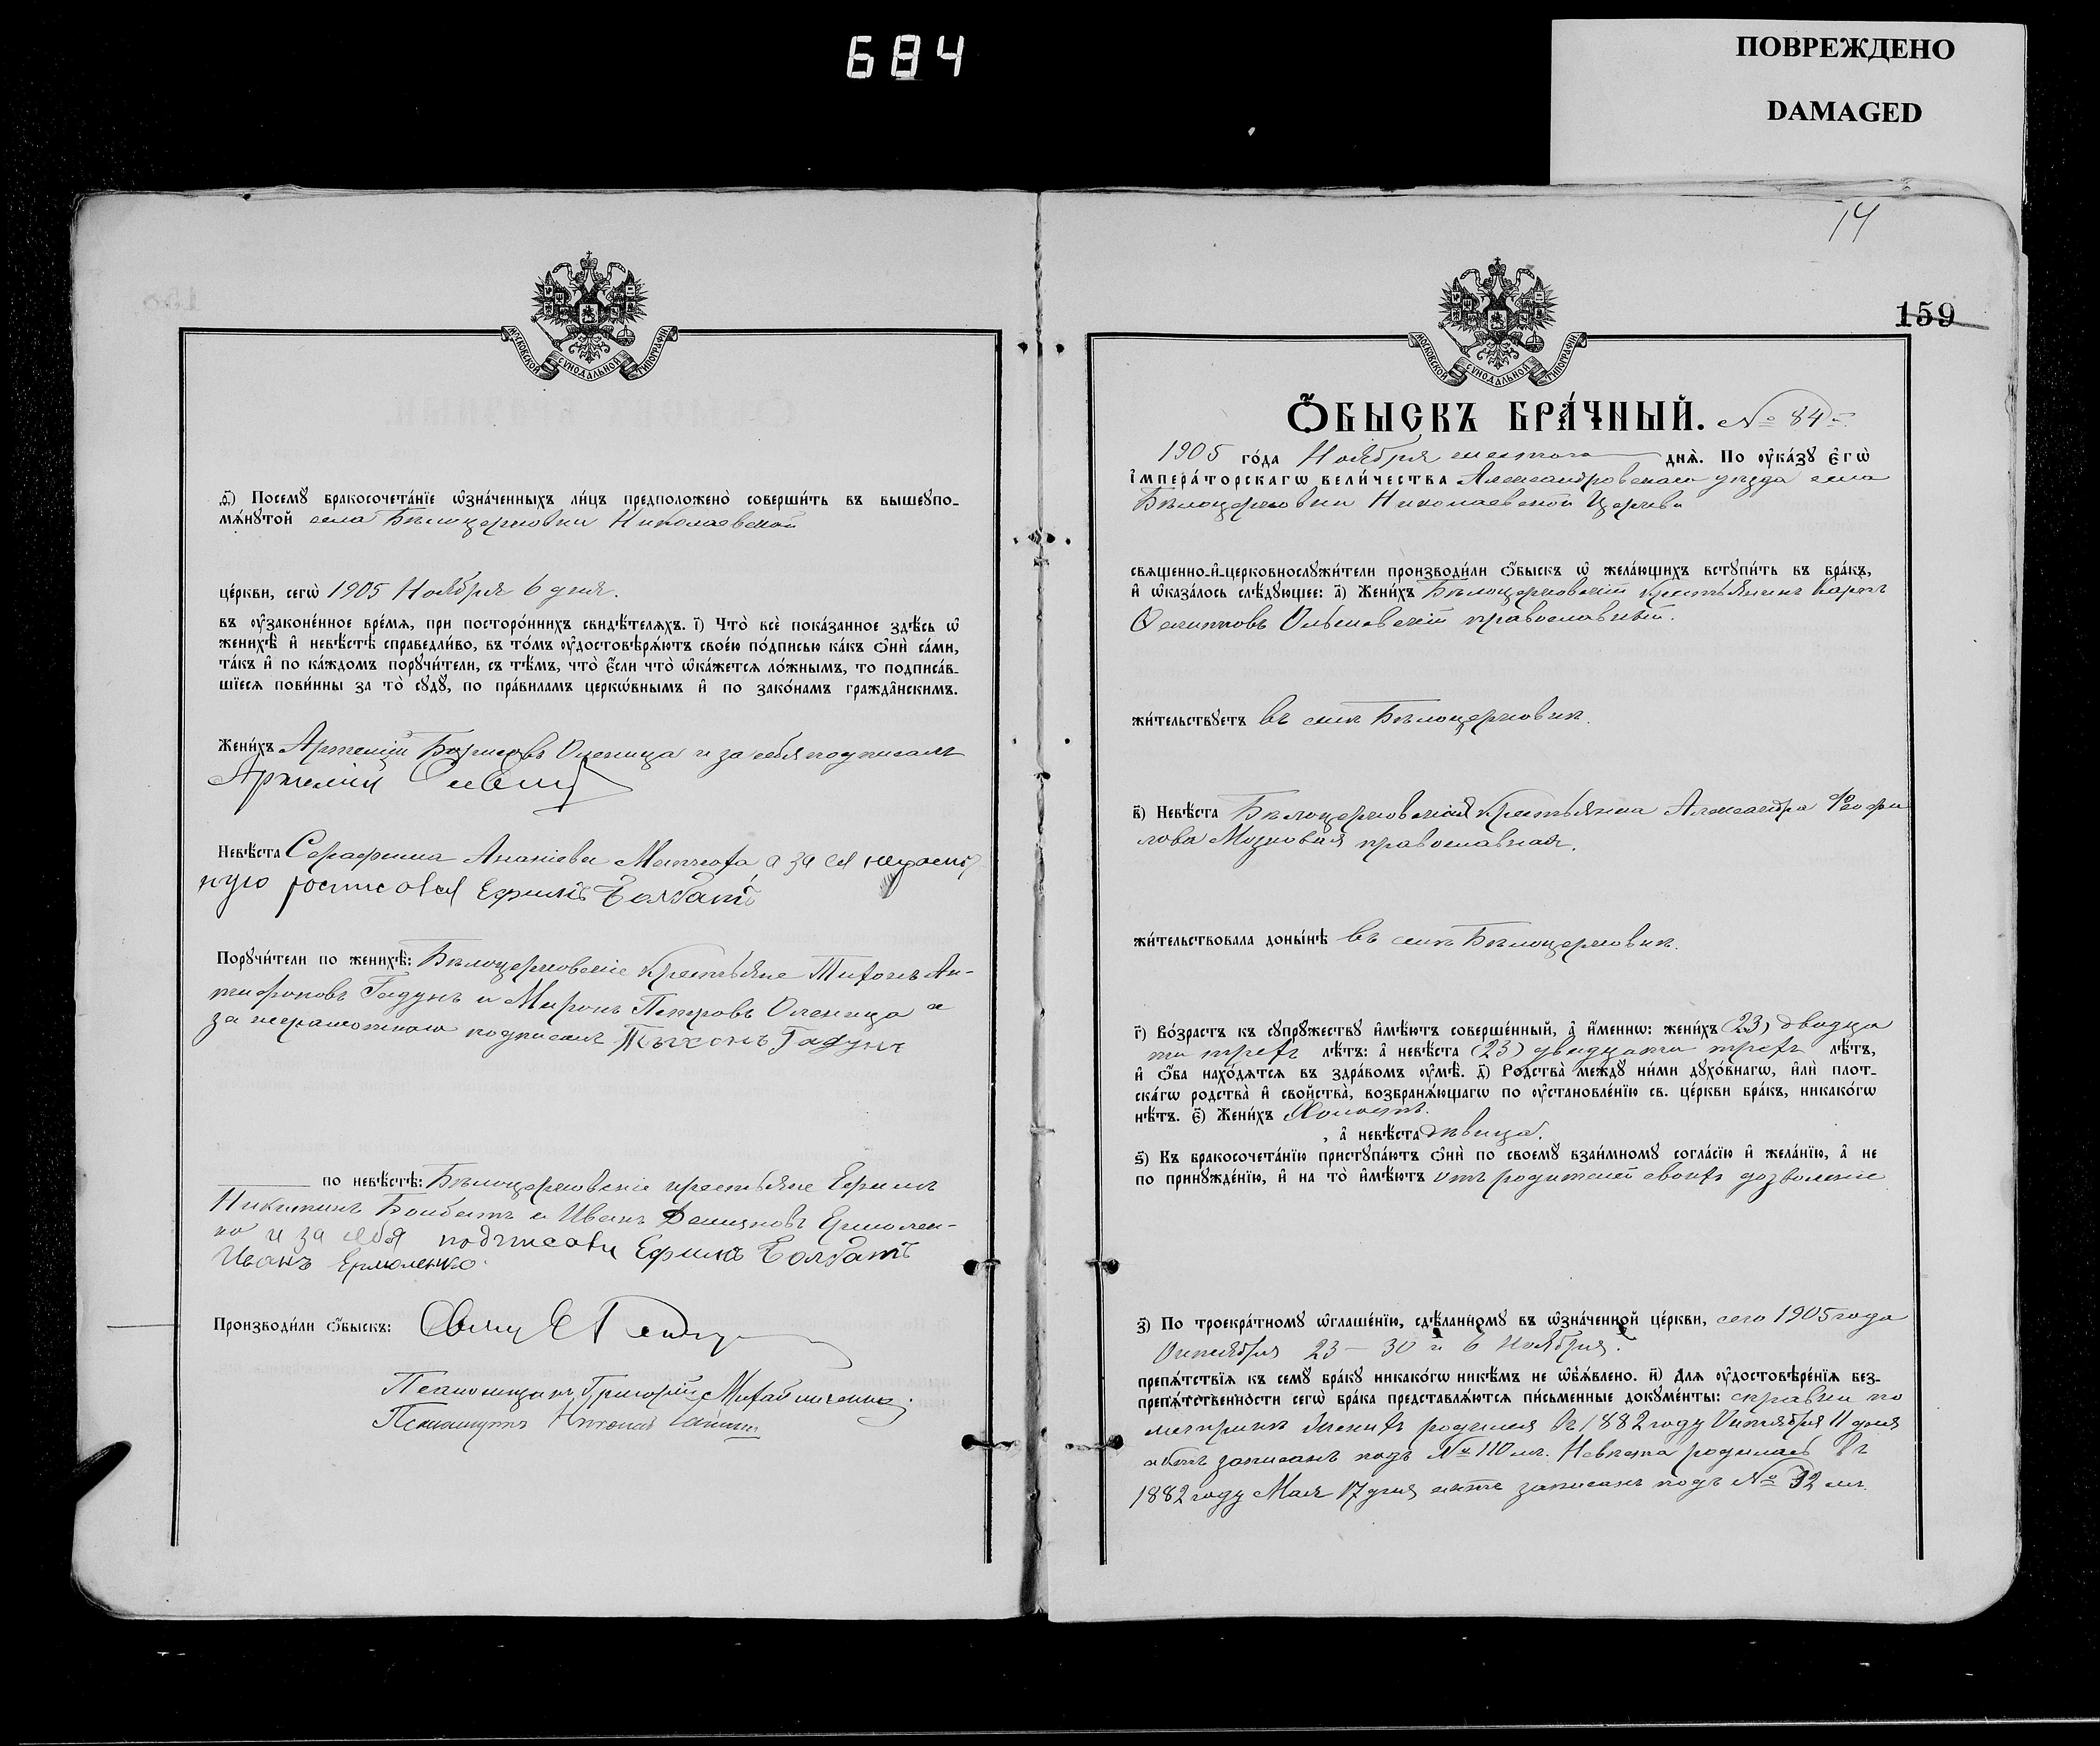 684
ПОВРЕЖДЕНО
DAMAGED
МОСКОВСКОЙ СѴНОДАЛЬНОЙ ТИПОГРАФІИ
д҃) Посемꙋ бракосочета́нїе ѡ҆зна́ченныхъ ли́цъ предположено̀ соверши́ть въ вышеꙋпо-
мѧ́нꙋтой села Бѣлоцерковки Николаевской
це́ркви, сегѡ̀ 1905 Ноября 6 дня.
въ ᲂу҆зако́ненное вре́мѧ, при посторо́ннихъ свидѣ́телѧхъ. і҃) Что̀ всѐ пока́занное здѣ́сь ѡ҆
женихѣ̀ и҆ невѣ́стѣ справедли́во, въ то́мъ ᲂу҆достовѣрѧ́ютъ свое́ю по́дписью ка́къ ѻ҆нѝ са́ми,
та́къ и҆ по ка́ждомъ порꙋчи́тели, съ тѣ́мъ, что̀ є҆́сли что̀ ѡ҆ка́жетсѧ ло́жнымъ, то подписа́в-
шїесѧ пови́нны за то̀ сꙋдꙋ̀, по пра́виламъ церкѡ́внымъ и҆ по зако́намъ гражда̑нскимъ.
Жени́хъ Артемій Борисовъ Оленица и за себя подписалъ
Артемій
Невѣ́ста Серафима Ананіева а за ея неграмот
ную росписовся Ефимъ Болбатъ
Порꙋчи́тели по женихѣ̀: Бѣлоцерковскіе Крестьяне Тихонъ Ан-
тифоновъ Гадунъ и Миронъ Петровъ Оленица а
за неграмотного подписалъ Тыхонъ Гадунъ
по невѣ́стѣ: Бѣлоцерковскіе крестьяне Ефимъ
Никитинъ Болбатъ и Иванъ Демяновъ Ермолен-
ко и за себя подписови Ефимъ Болбатъ
Иванъ Ермоленко.
Производи́ли ѻ҆́быскъ:
Псаломщикъ Григорій Михайличенко
14
159
МОСКОВСКОЙ СѴНОДАЛЬНОЙ ТИПОГРАФІИ
Ѻ҆́БЫСКЪ БРА́ЧНЫЙ. № 84-й
1905 го́да Ноября шестого днѧ̀. По ᲂу҆ка́зꙋ є҆гѡ̀
і҆мпера́торскагѡ вели́чества Александровскаго уѣзда села
Бѣлоцерковки Николаевской Церкви
свѧщенно-и҆-церковнослꙋжи́тели производи́ли ѻ҆́быскъ ѡ҆ жела́ющихъ встꙋпи́ть въ бра́къ,
и҆ ѡ҆каза́лось слѣ́дꙋющее: а҃) Жени́хъ Бѣлоцерковскій Крестьянинъ Карпъ
Ольшовскій православный.
жи́тельствꙋетъ въ селѣ Бѣлоцерковкѣ.
в҃) Невѣ́ста Бѣлоцерковская Крестьянка Александра Феофи
лова Мозговая православная.
жи́тельствовала доны́нѣ въ селѣ Бѣлоцерковкѣ.
г҃) Во́зрастъ къ сꙋпрꙋжествꙋ и҆мѣ́ютъ соверше́нный, а҆ и҆́меннѡ: жени́хъ (23) двадца
ти трехъ лѣ́тъ: а҆ невѣ́ста (23) двадцати трехъ лѣ́тъ,
и҆ ѻ҆́ба нахо́дѧтсѧ въ здра́вомъ ᲂу҆мѣ̀. д҃) Родства̀ междꙋ̀ ни́ми дꙋхо́внагѡ, и҆лѝ плот-
ска́гѡ родства̀ и҆ сво́йства̀, возбранѧ́ющагѡ по ᲂу҆становле́нїю св. це́ркви бра́къ, никако́гѡ
нѣ́тъ. є҃) Жени́хъ Холостъ.
, а҆ невѣ́ста дѣвица.
ѕ҃) Къ бракосочета́нїю пристꙋпа́ютъ ѻ҆нѝ по своемꙋ̀ взаи́мномꙋ согла́сїю и҆ жела́нїю, а҆ не
по принꙋжде́нїю, и҆ на то̀ и҆мѣ́ютъ отъ родителей своихъ дозволеніе
з҃) По троекра́тномꙋ ѡ҆глаше́нїю, сдѣ́ланномꙋ въ ѡ҆зна́ченной це́ркви, сего 1905 года
Октября 23 — 30 и 6 Ноября.
препѧ́тствїѧ къ семꙋ̀ бра́кꙋ никако́гѡ никѣ́мъ не ѡ҆б̾ѧ́влено. и҃) Длѧ ᲂу҆достовѣре́нїѧ без-
препѧ́тственности сегѡ̀ бра́ка представлѧ́ютсѧ пи́сьменные докꙋме́нты: справки по
метрикѣ Женихъ родился въ 1882 году Октября 11 дня
актъ записанъ подъ № 110 м. Невѣста родилась въ
1882 году Мая 17 дня актъ записанъ подъ № 32 м.